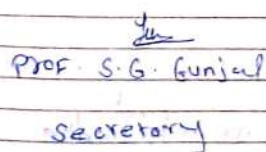 Prof. S.G. Gunjal
Secretory